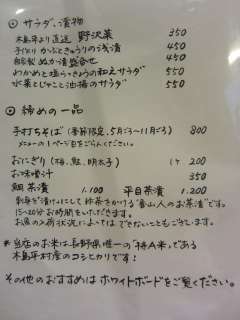 ◎ サラダ、漬物
木島平より直送 野沢菜 350
手づくり かぶときゅうりの浅漬 450
自家製 ぬか漬盛合せ 450
わかめと塩らっきょうの和えサラダ 550
水菜とじゃこと油揚のサラダ 550
◎ 締めの一品
手打ちそば (季節限定、5月ごろ〜11月ごろ) 800
メニューの1ページ目をごらんください。
おにぎり (梅、鮭、明太子) 1ケ 200
お味噌汁 350
鯛茶漬 1.100 平目茶漬 1.200
刺身を漬けにして抹茶をかける
15〜20分お時間をいただきます。
お魚の入荷状況によってはできないこともございます。
*当店のお米は長野県唯一の「特A米」である
木島平村産のコシヒカリです!
その他のおすすめはホワイトボードをご覧ください。